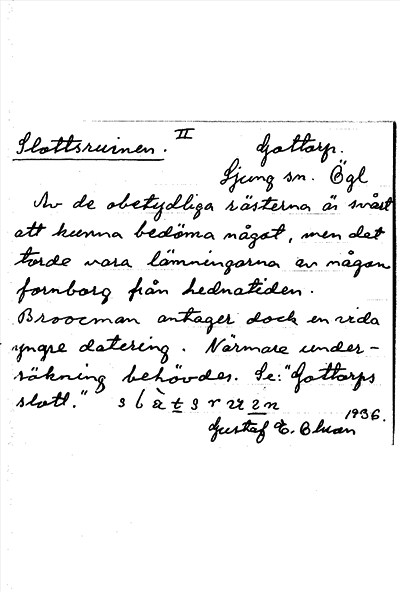 Slottsruinen. II Gottorp.
Ljung sn. Ögl
Av de obetydliga rästerna är svårt
att kunna bedöma något, men det
torde vara lämningarna av någon
fornborg från hednatiden.
Broocman antager dock en vida
yngre datering. Närmare under-
sökning behövdes. Se: "Gottorps
slott."
1936.
Gustaf E. Bluan